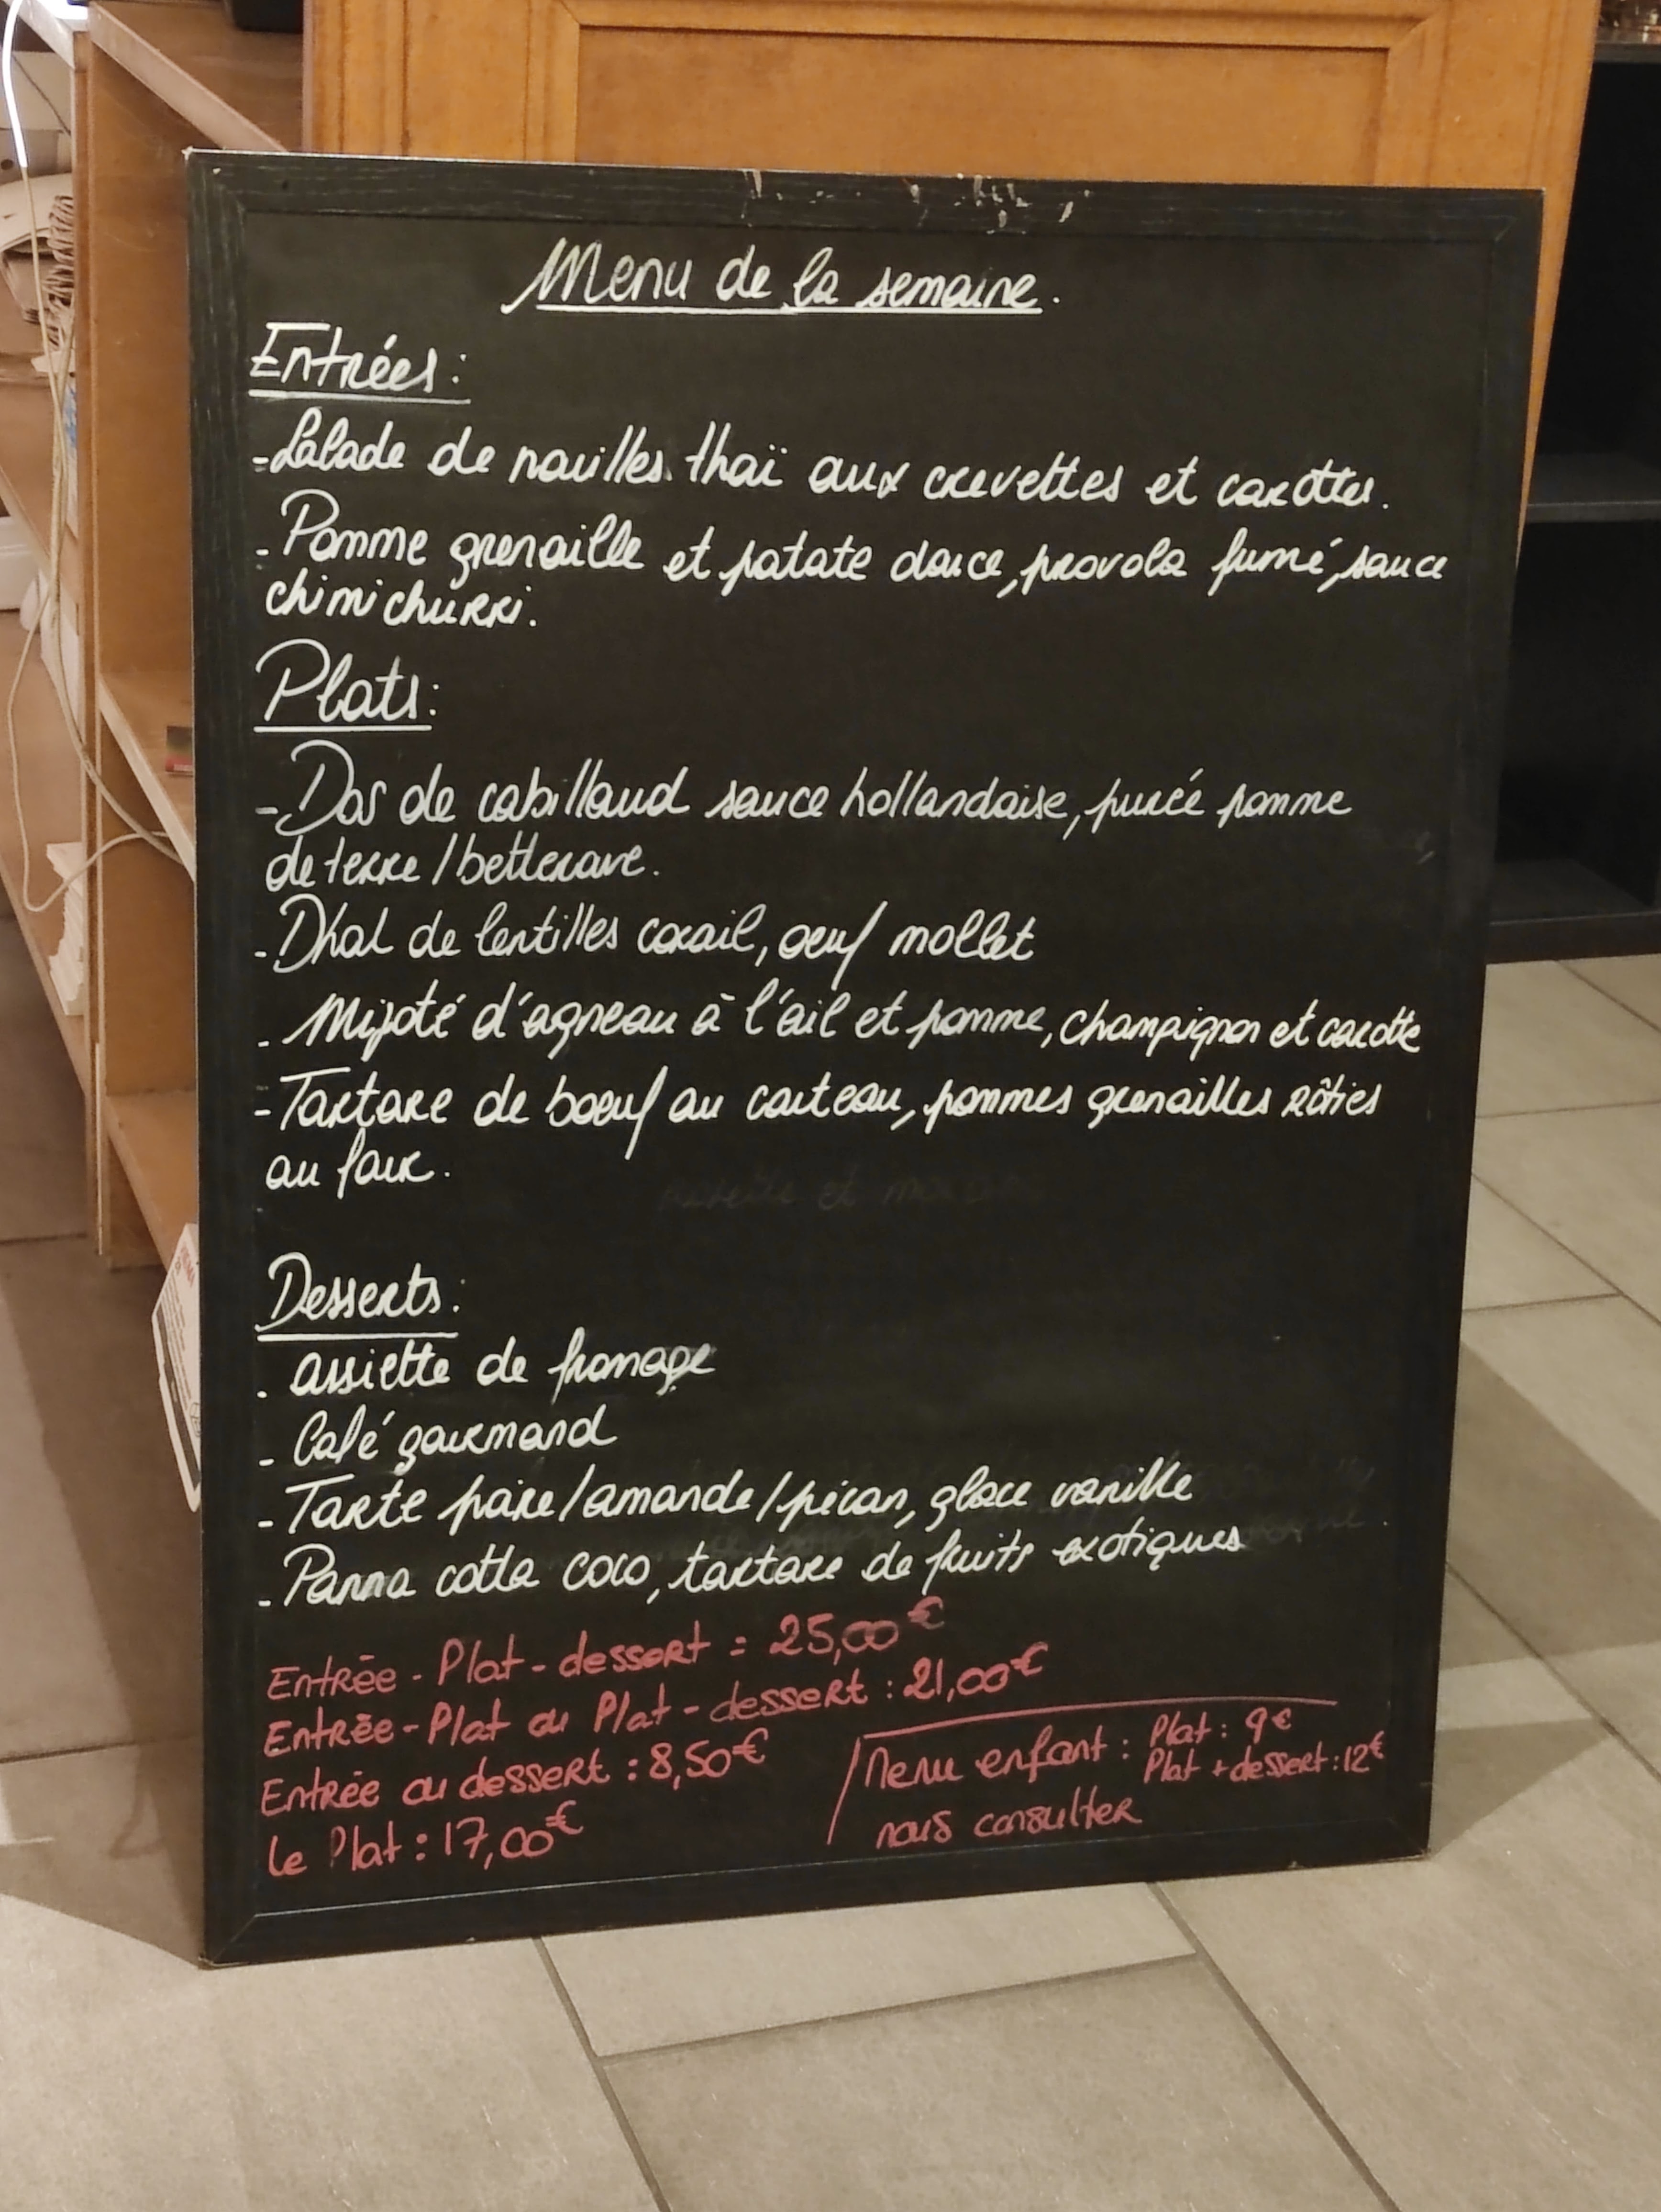 Menu de la semaine.
Entrées :
- Salade de nouilles thaï aux crevettes et carottes.
- Pomme grenaille et patate douce, provola fumé, sauce
chimichurri.
Plats :
- Dos de cabillaud sauce hollandaise, purée pomme
de terre / betterave.
- Dhal de lentilles corail, oeuf mollet
- Mijoté d'agneau à l'ail et pomme, champignon et carotte
- Tartare de boeuf au couteau, pommes grenailles rôties
au four.
Desserts :
- assiette de fromage
- Café gourmand
- Tarte poire/amande/pécan, glace vanille
- Panna cotta coco, tartare de fruits exotiques
Entrée - Plat - dessert = 25,00€
Entrée - Plat ou Plat - dessert : 21,00€
Entrée ou dessert : 8,50€
Le Plat : 17,00€
Menu enfant : Plat : 9€
Plat + dessert : 12€
nous consulter